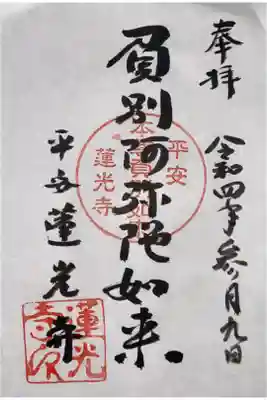 奉拝
令和四年参月九日
負別阿弥陀如来
平安蓮光寺
平安
蓮光寺
蓮光寺印